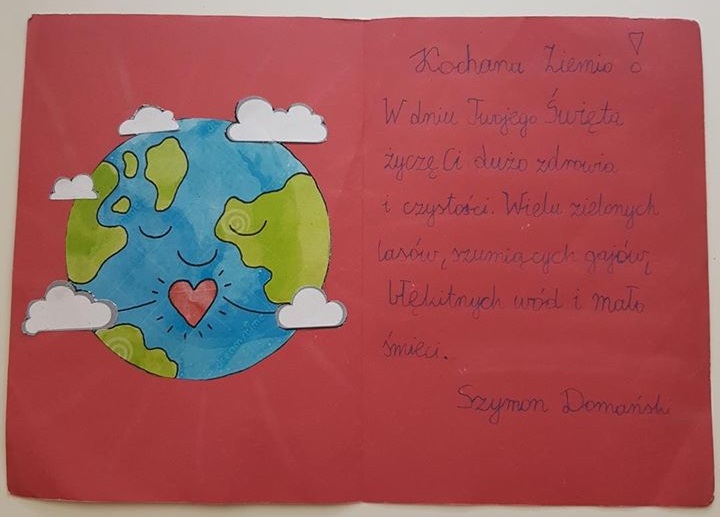 Kochana Ziemio!
W dniu Twojego Święta
życzę Ci dużo zdrowia
i czystości. Wielu zielonych
lasów, szumiących gajów,
błękitnych wód i mało
śmieci.
Szymon Domański